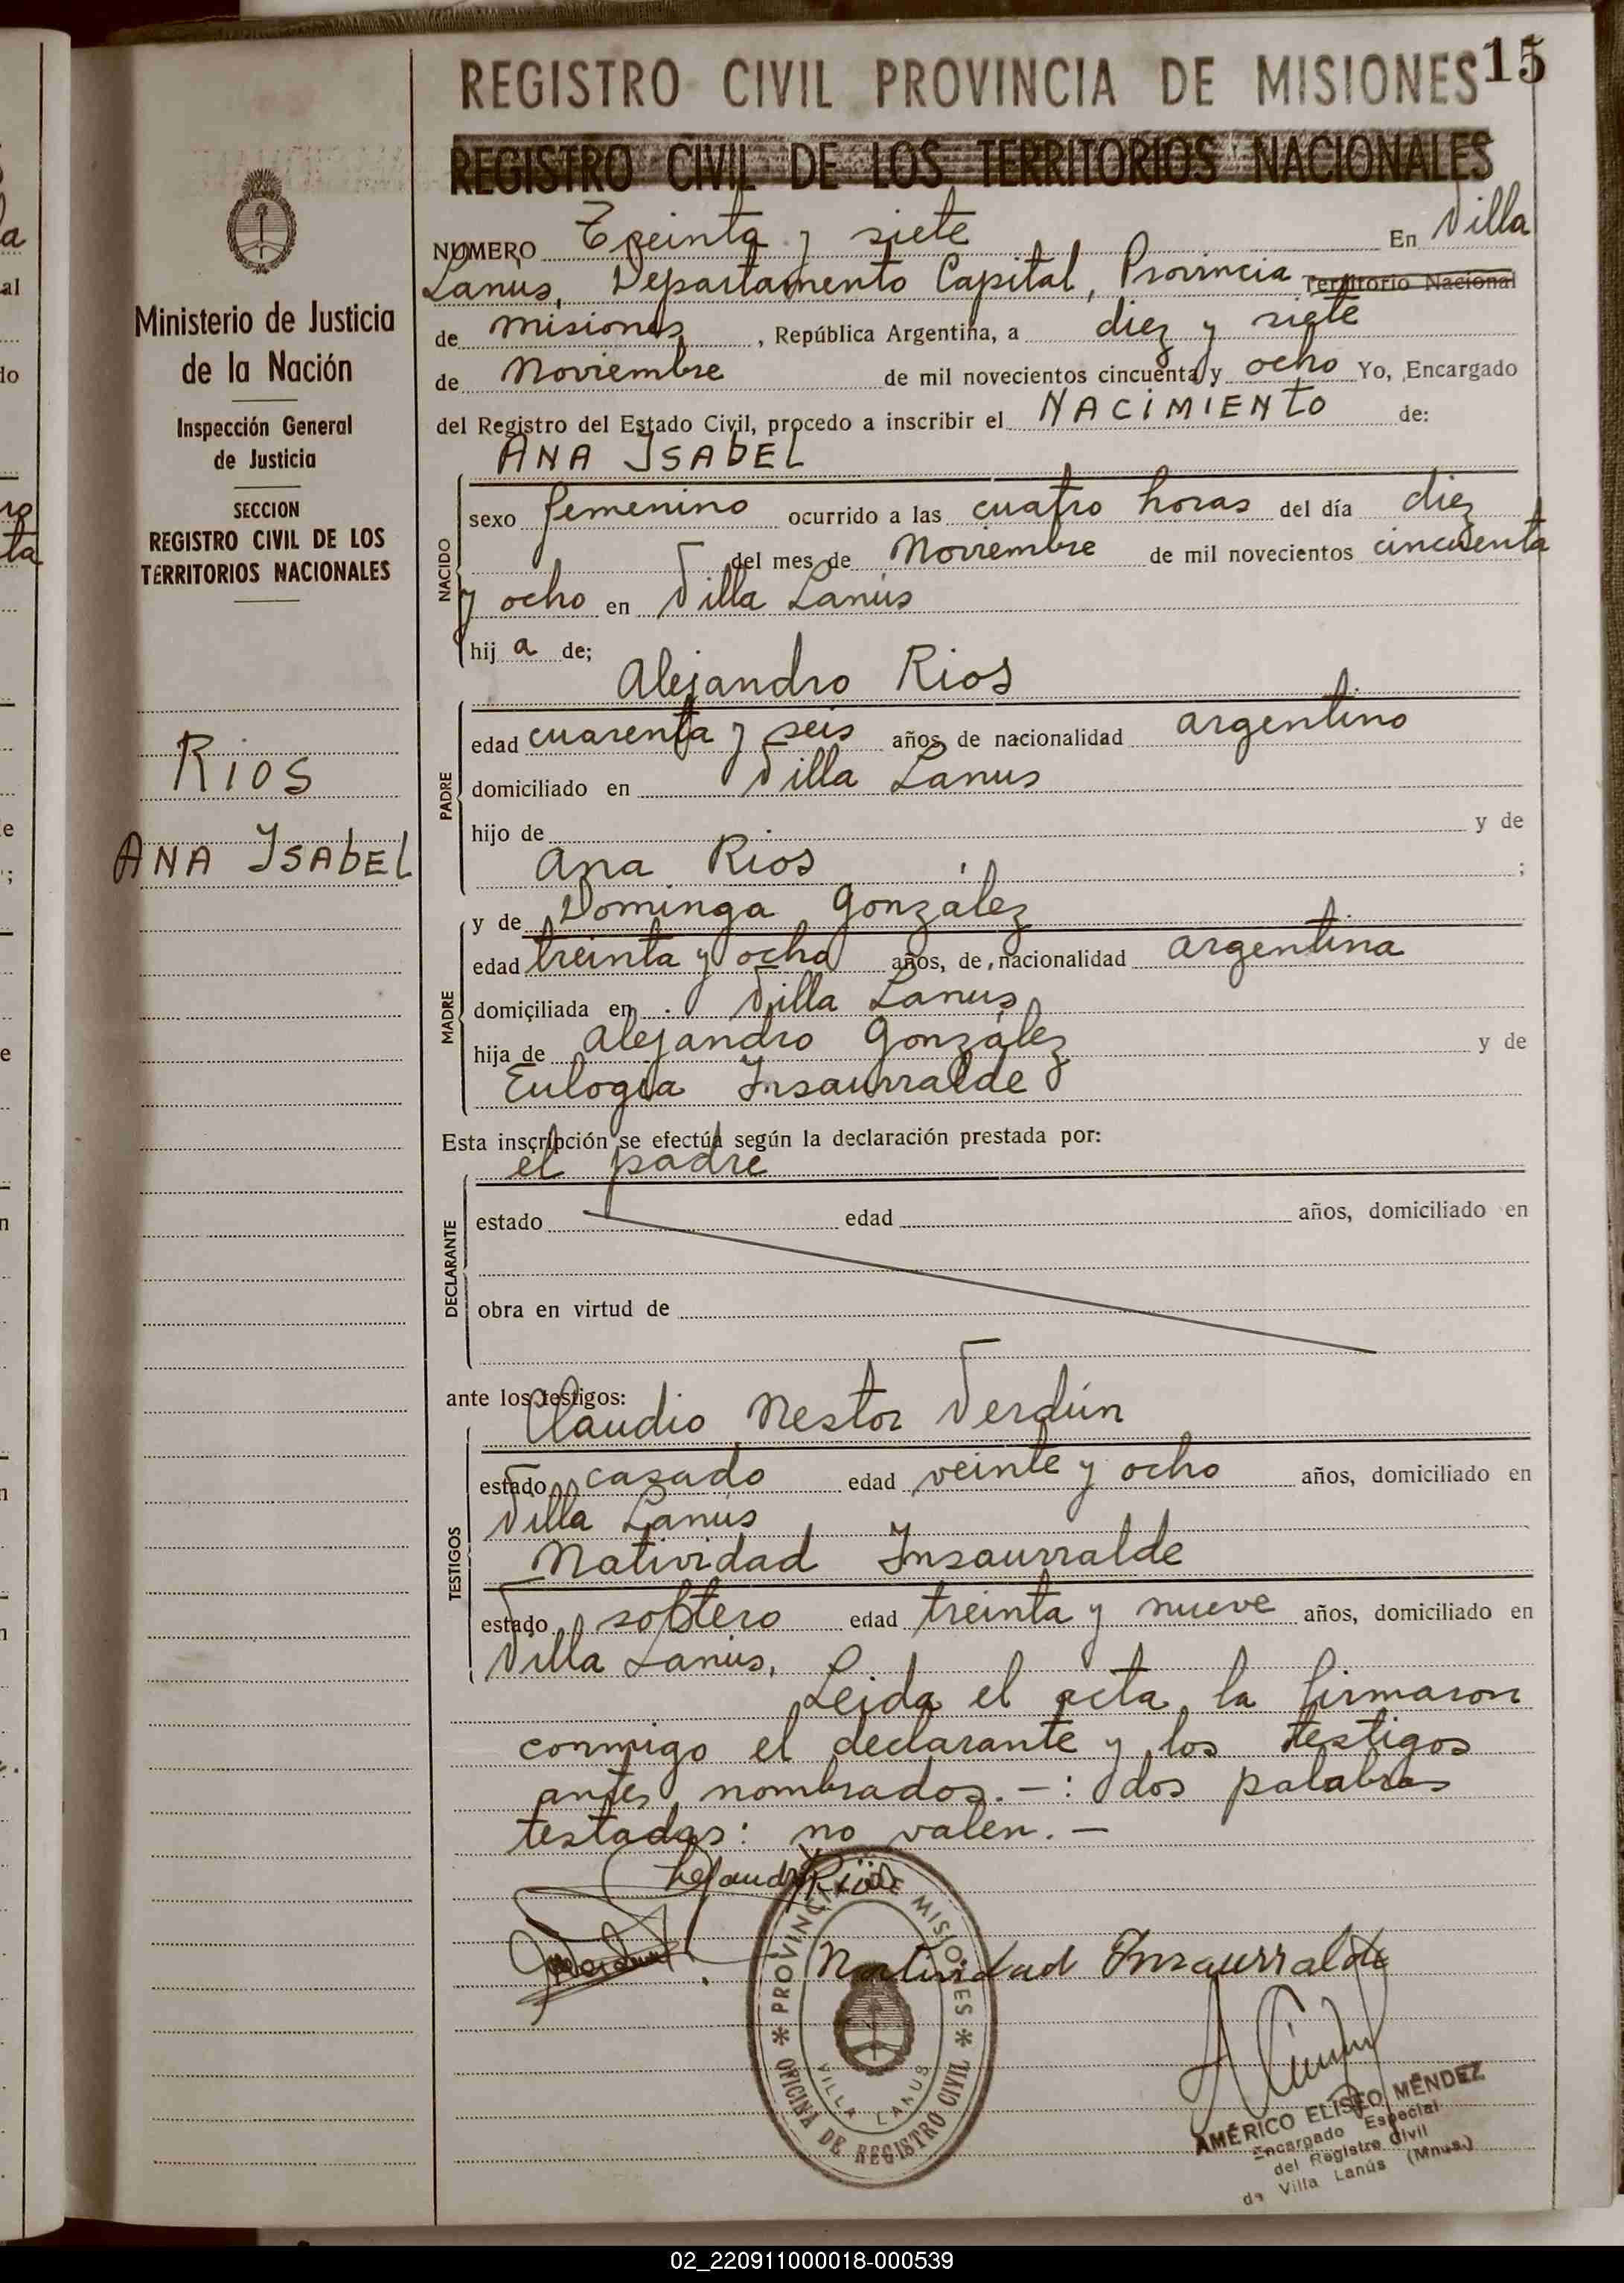 REGISTRO CIVIL PROVINCIA DE MISIONES 15
REGISTRO CIVIL DE LOS TERRITORIOS NACIONALES
Ministerio de Justicia
de la Nación
Inspección General
de Justicia
SECCION
REGISTRO CIVIL DE LOS
TERRITORIOS NACIONALES
RIOS
ANA ISABEL
NUMERO Treinta y siete En Villa
Lanus, Departamento Capital, Provincia Territorio Nacional
de misiones, República Argentina, a diez y siete
de Noviembre de mil novecientos cincuenta y ocho Yo, Encargado
del Registro del Estado Civil, procedo a inscribir el NACIMIENTO de:
ANA ISABEL
NACIDO
sexo femenino ocurrido a las cuatro horas del día diez
del mes de Noviembre de mil novecientos cincuenta
y ocho en Villa Lanús
hij a de;
Alejandro Rios
PADRE
edad cuarenta y seis años, de nacionalidad argentino
domiciliado en Villa Lanus
hijo de y de
Ana Rios ;
MADRE
y de Dominga González
edad treinta y ocho años, de nacionalidad argentina
domiciliada en Villa Lanus
hija de Alejandro González y de
Eulogia Insaurralde
Esta inscripción se efectúa según la declaración prestada por:
el padre
DECLARANTE
estado edad años, domiciliado en
obra en virtud de
ante los testigos:
Claudio Nestor Verdún
TESTIGOS
estado casado edad veinte y ocho años, domiciliado en
Villa Lanús
Natividad Insaurralde
estado soltero edad treinta y nueve años, domiciliado en
Villa Lanús.
Leida el acta, la firmaron
conmigo el declarante y los testigos
antes nombrados.-: dos palabras
testadas: no valen.-
Alejandro Rios
Natividad Insaurralde
PROVINCIA DE MISIONES
VILLA LANUS
OFICINA DE REGISTRO CIVIL
AMÉRICO ELISEO MÉNDEZ
Encargado Especial
del Registro Civil
de Villa Lanús (Mnes.)
02_220911000018-000539